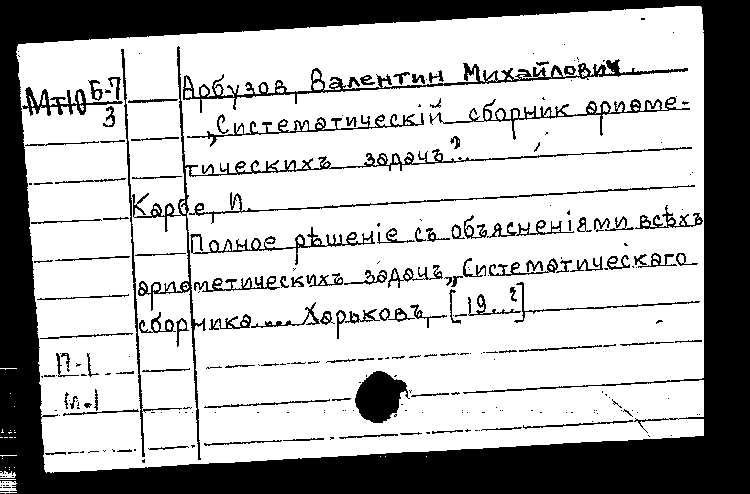 Мт10 Б-7
3
Арбузов, Валентин Михайлович.
„Систематическій сборник ариѳме-
тическихъ задачъ"...
Карбе, И.
Полное рѣшеніе съ объясненіями всѣхъ
ариѳметическихъ задачъ „Систематическаго
сборника.... Харьковъ, [19...?]
П-1
М-1